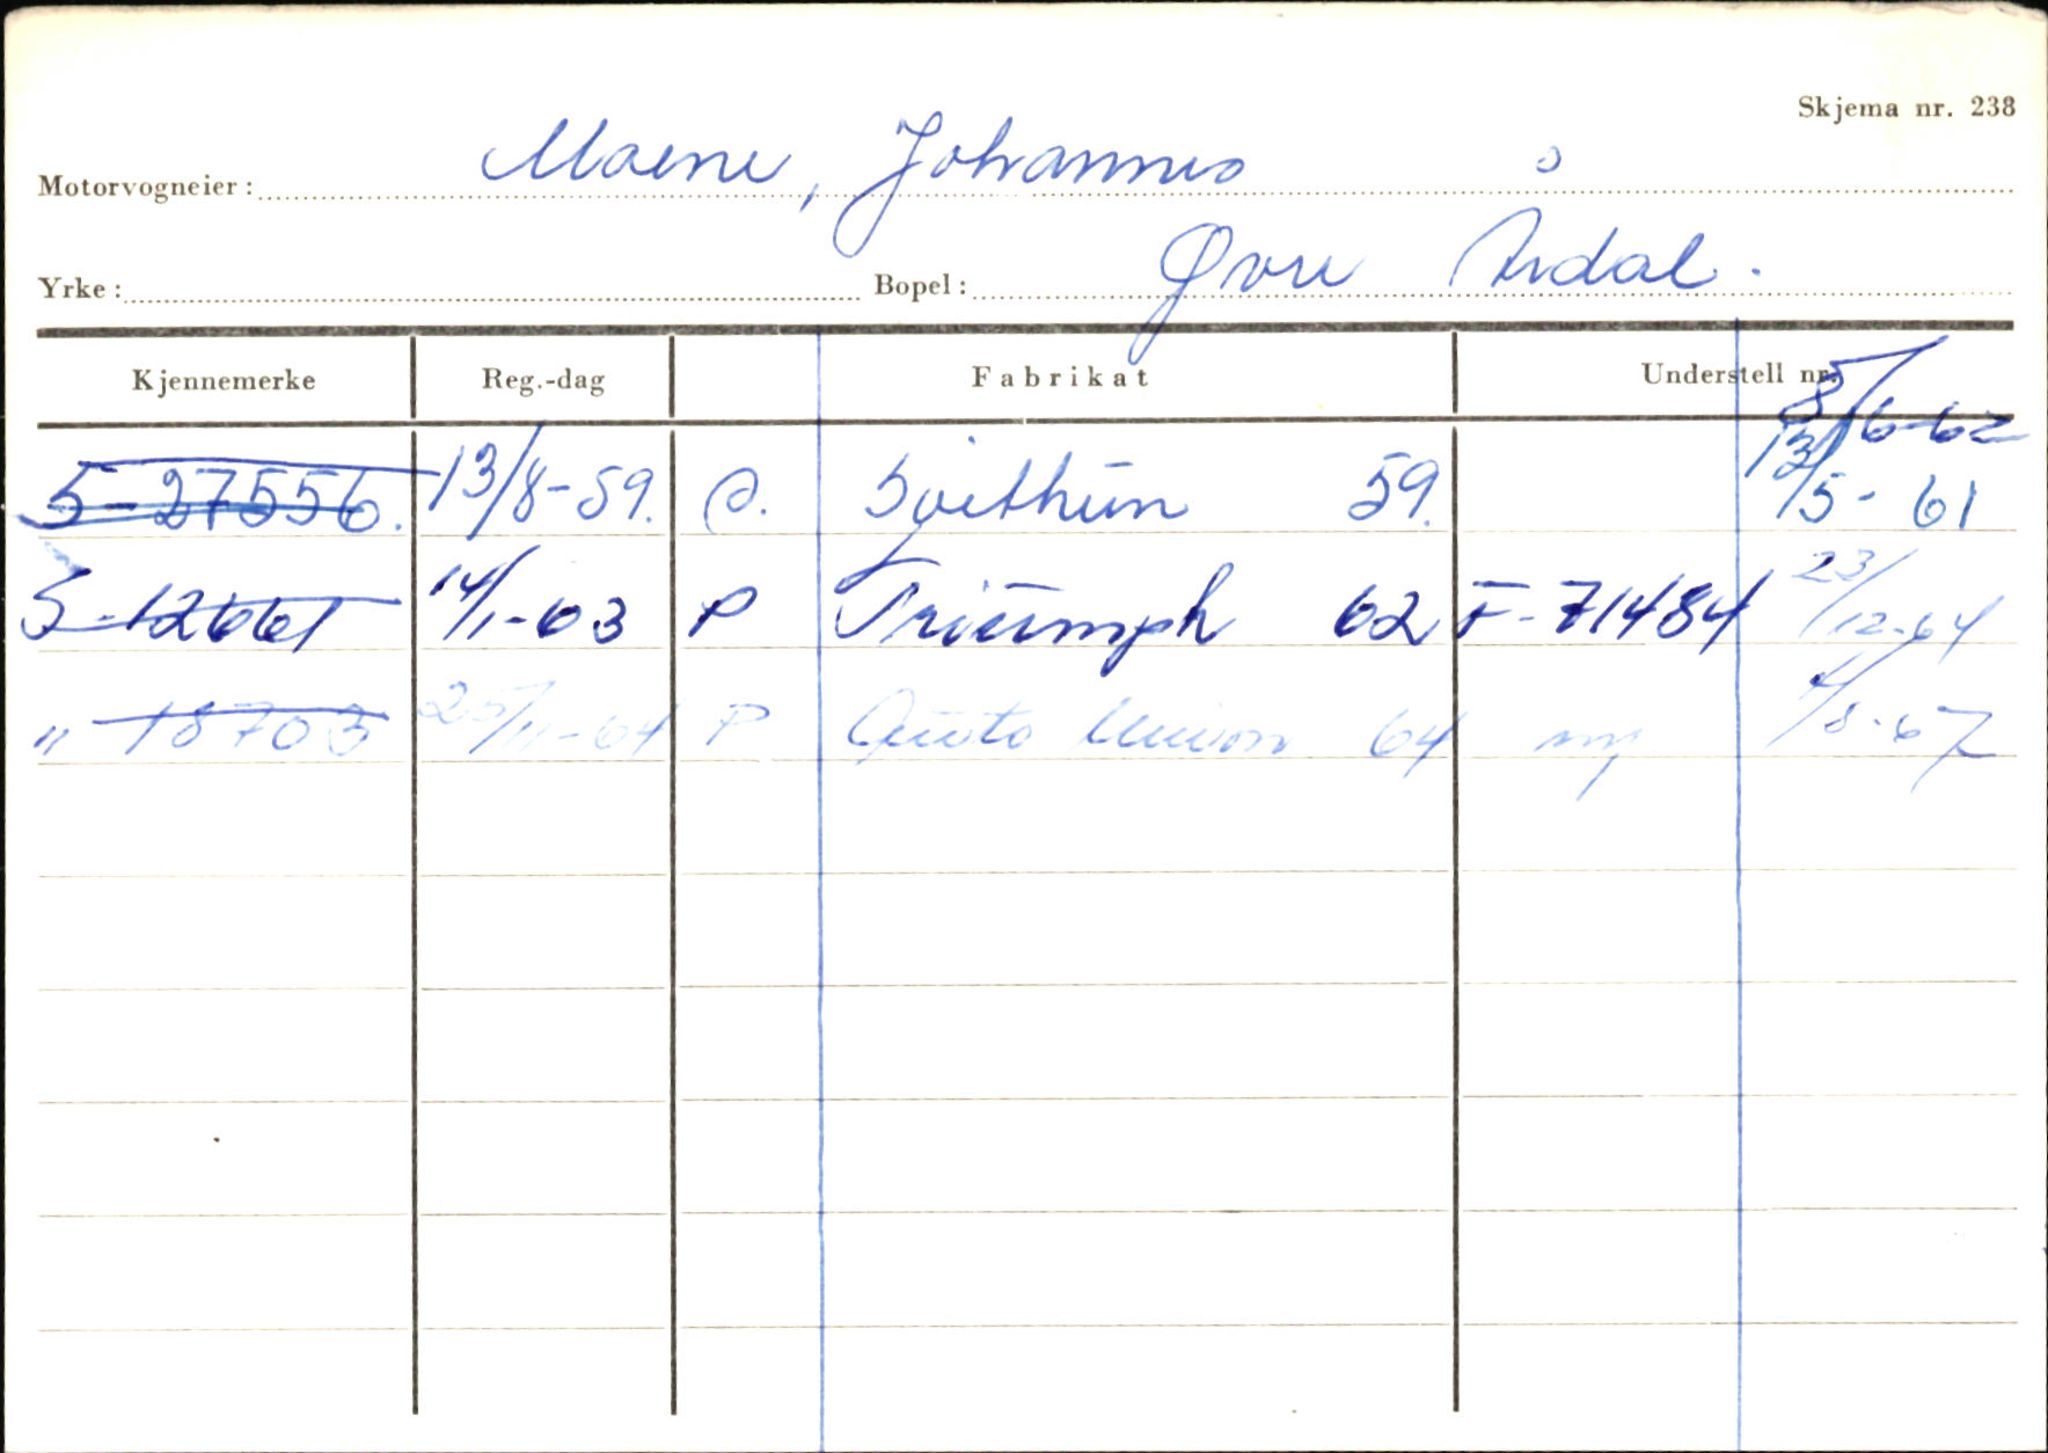 Skjema nr. 238
Motorvogneier: Moene, Johannes
Yrke: Bopel: Øvre Årdal.
Kjennemerke Reg.-dag Fabrikat Understell nr.
5/6-62
S-27556. 13/8-59. Svithun 59. 13/5-61
S-12661 14/1-63 P Triumph 62 F-71484 23/12-64
" 18703 25/11-64 P Auto Union 64 ny 4/8-67